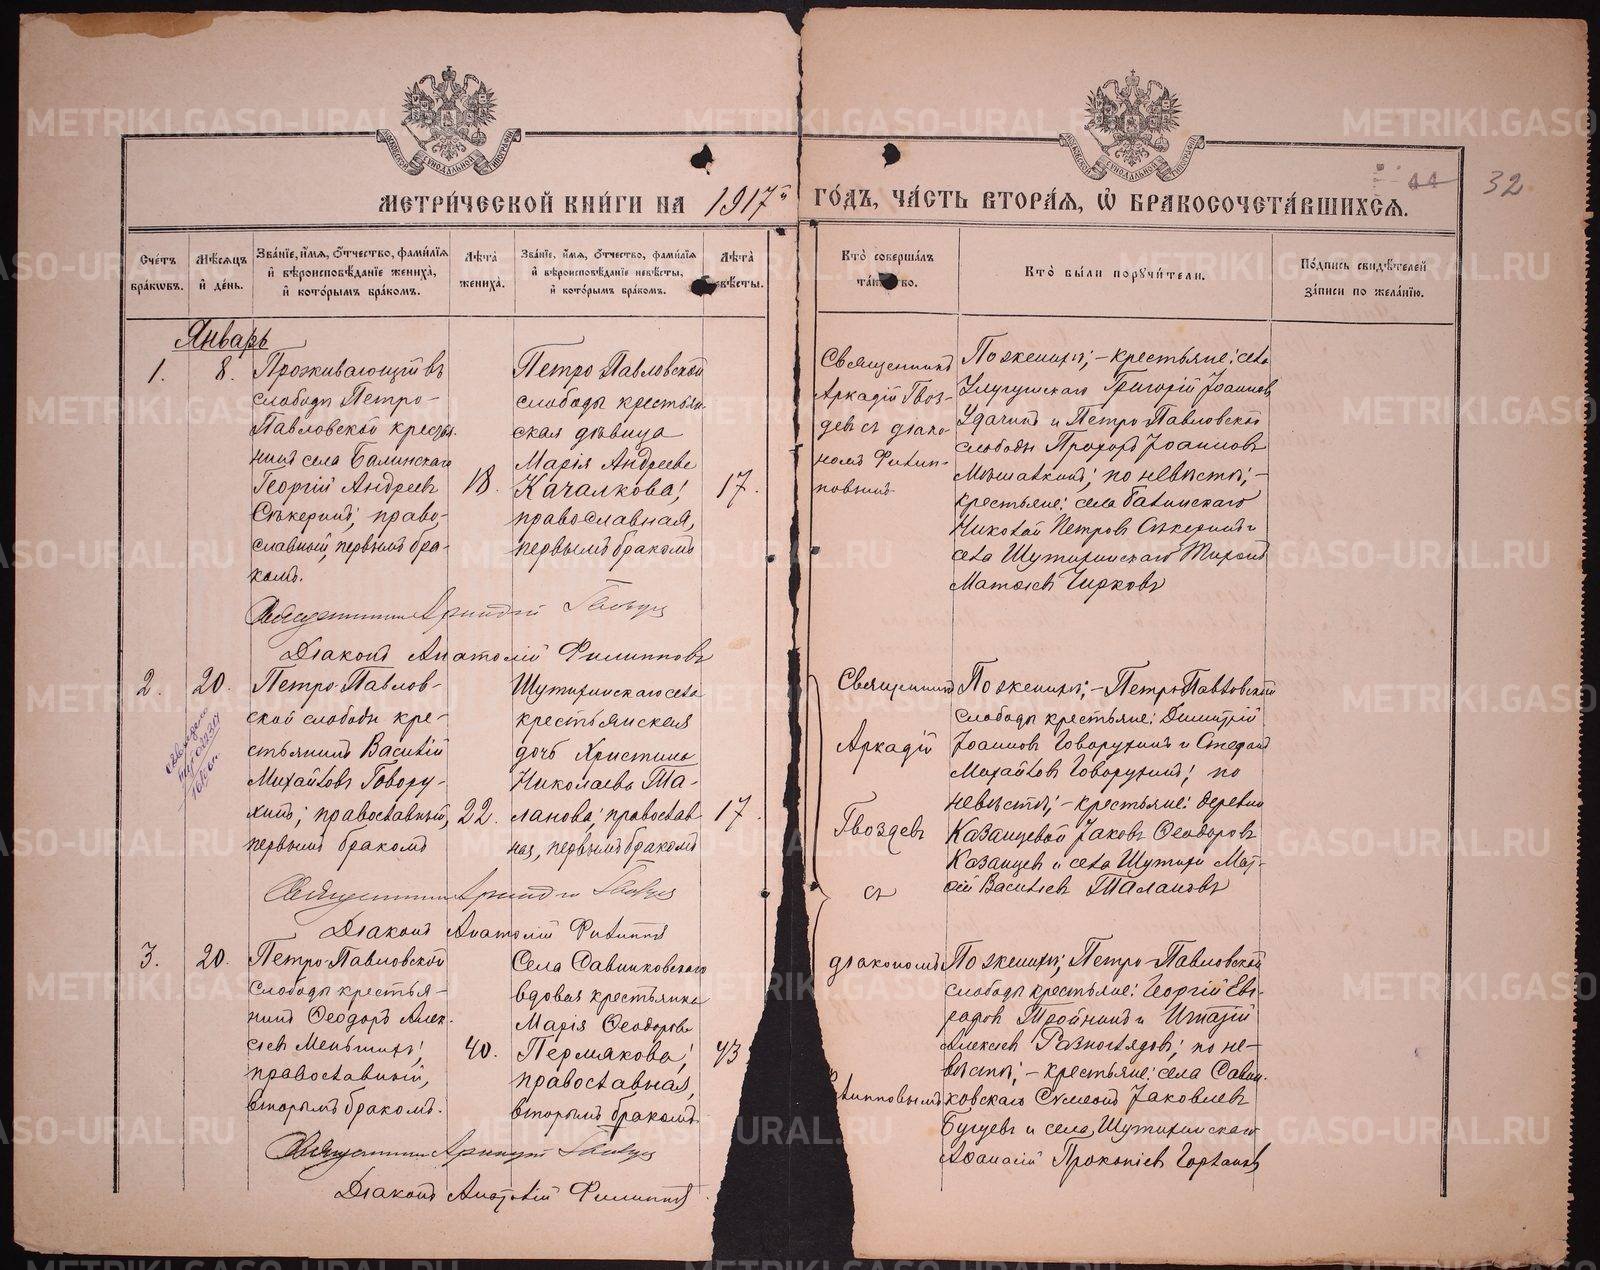 МЕТРИЧЕСКОЙ КНИГИ НА 1917й ГОДЪ, ЧАСТЬ ВТОРАЯ, Ѡ БРАКОСОЧЕТАВШИХСЯ.
44 32
Счетъ браковъ.
Мѣсяцъ и день.
Званіе, имя, отчество, фамилія и вѣроисповѣданіе жениха, и которымъ бракомъ.
Лѣта жениха.
Званіе, имя, отчество, фамилія и вѣроисповѣданіе невѣсты, и которымъ бракомъ.
Лѣта невѣсты.
Кто совершалъ таинство.
Кто были поручители.
Подпись свидѣтелей записи по желанію.
Январь
1.
8.
Проживающій въ
слободѣ Петро-
Павловской кресть-
нинъ села Балинскаго
Георгій Андреевъ
Сѣкеринъ, право-
славный, первымъ бра-
комъ.
18.
Петро Павловской
слободы крестьян
ская дѣвица
Марія Андреева
Качалкова,
православная,
первымъ бракомъ
17.
Священникъ
Аркадій Гвоз-
девъ съ діако-
номъ Филип-
повымъ
По женихѣ, - крестьяне: села
Григорій Іоанновъ
Удачинъ и Петро-Павловской
слободы Прохоръ Іоанновъ
по невѣстѣ, -
крестьяне: села Балинскаго
Николай Петровъ Сѣкеринъ и
села Шутихинскаго
Чирковъ
Священникъ Аркадій Гвоздевъ
Діаконъ Анатолій Филипповъ
2.
20.
Петро-Павлов-
ской слободы кре-
стьянинъ Василій
Михайловъ Говору-
хинъ, православный,
первымъ бракомъ
22.
Шутихинскаго села
крестьянская
дочь Христина
Николаева Та-
ланова, православ
ная, первымъ бракомъ
17.
Священникъ
Аркадій
Гвоздевъ
съ
діакономъ
Филипповымъ
По женихѣ, - Петро-Павловской
слободы крестьяне: Димитрій
Іоанновъ Говорухинъ и Стефанъ
Михайловъ Говорухинъ, по
невѣстѣ, - крестьяне: деревни
Казанцевой Іаковъ Ѳеодоровъ
Казанцевъ и села Шутихи Мат-
ѳій Васильевъ Талановъ
Священникъ Аркадій Гвоздевъ
Діаконъ Анатолій Филипповъ
3.
20.
Петро-Павловской
слободы крестья-
нинъ Ѳеодоръ Алек-
сіевъ Меньшихъ,
православный,
вторымъ бракомъ.
40.
Села Савинковскаго
вдовая крестьянка
Марія Ѳеодорова
Пермякова,
православная,
вторымъ бракомъ.
43
По женихѣ, Петро-Павловской
слободы крестьяне: Георгій Ев-
графовъ Тройнинъ и Игнатій
Алексіевъ Разноглядовъ, по не-
вѣстѣ, - крестьяне: села Савин-
ковскаго Сумеонъ Іаковлевъ
Бугуевъ и села Шутихинскаго
Аѳанасій Прокопіевъ Горланов
Священникъ Аркадій Гвоздевъ
Діаконъ Анатолій Филипповъ
METRIKI.GASO-URAL.RU